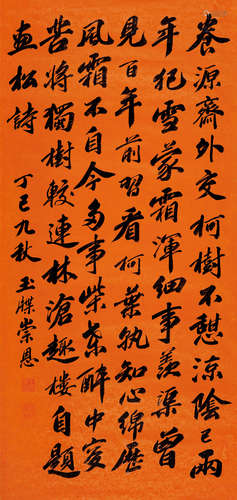 養源齋外交柯樹不憩涼陰已兩
年犯雪蒙霜渾細事羨渠曾
見百年前習看柯葉孰知心綿歷
風霜不自今多事柴桑醉中叟
苦將獨樹較連林滄趣樓自題
畫松詩
丁巳九秋 玉牒崇恩